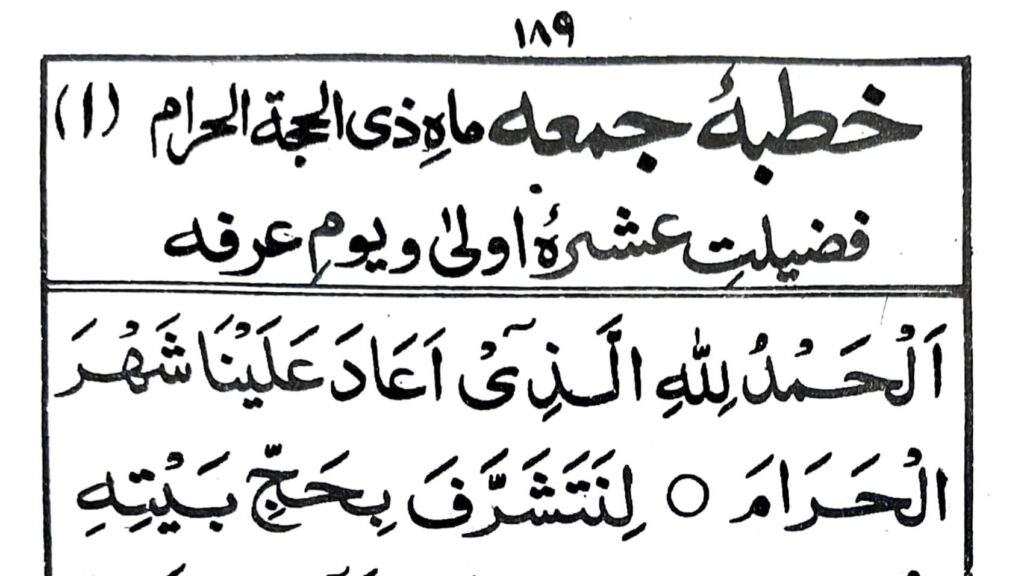 ۱۸۹
خطبۂ جمعه ماہِ ذی الحجة الحرام (۱)
فضیلتِ عشرۂ اولیٰ و یومِ عرفه
اَلْحَمْدُ لِلّٰهِ الَّذِىْٓ اَعَادَ عَلَيْنَا شَهْرَ
الْحَرَامَ ○ لِنَتَشَرَّفَ بِحَجِّ بَيْتِهِ